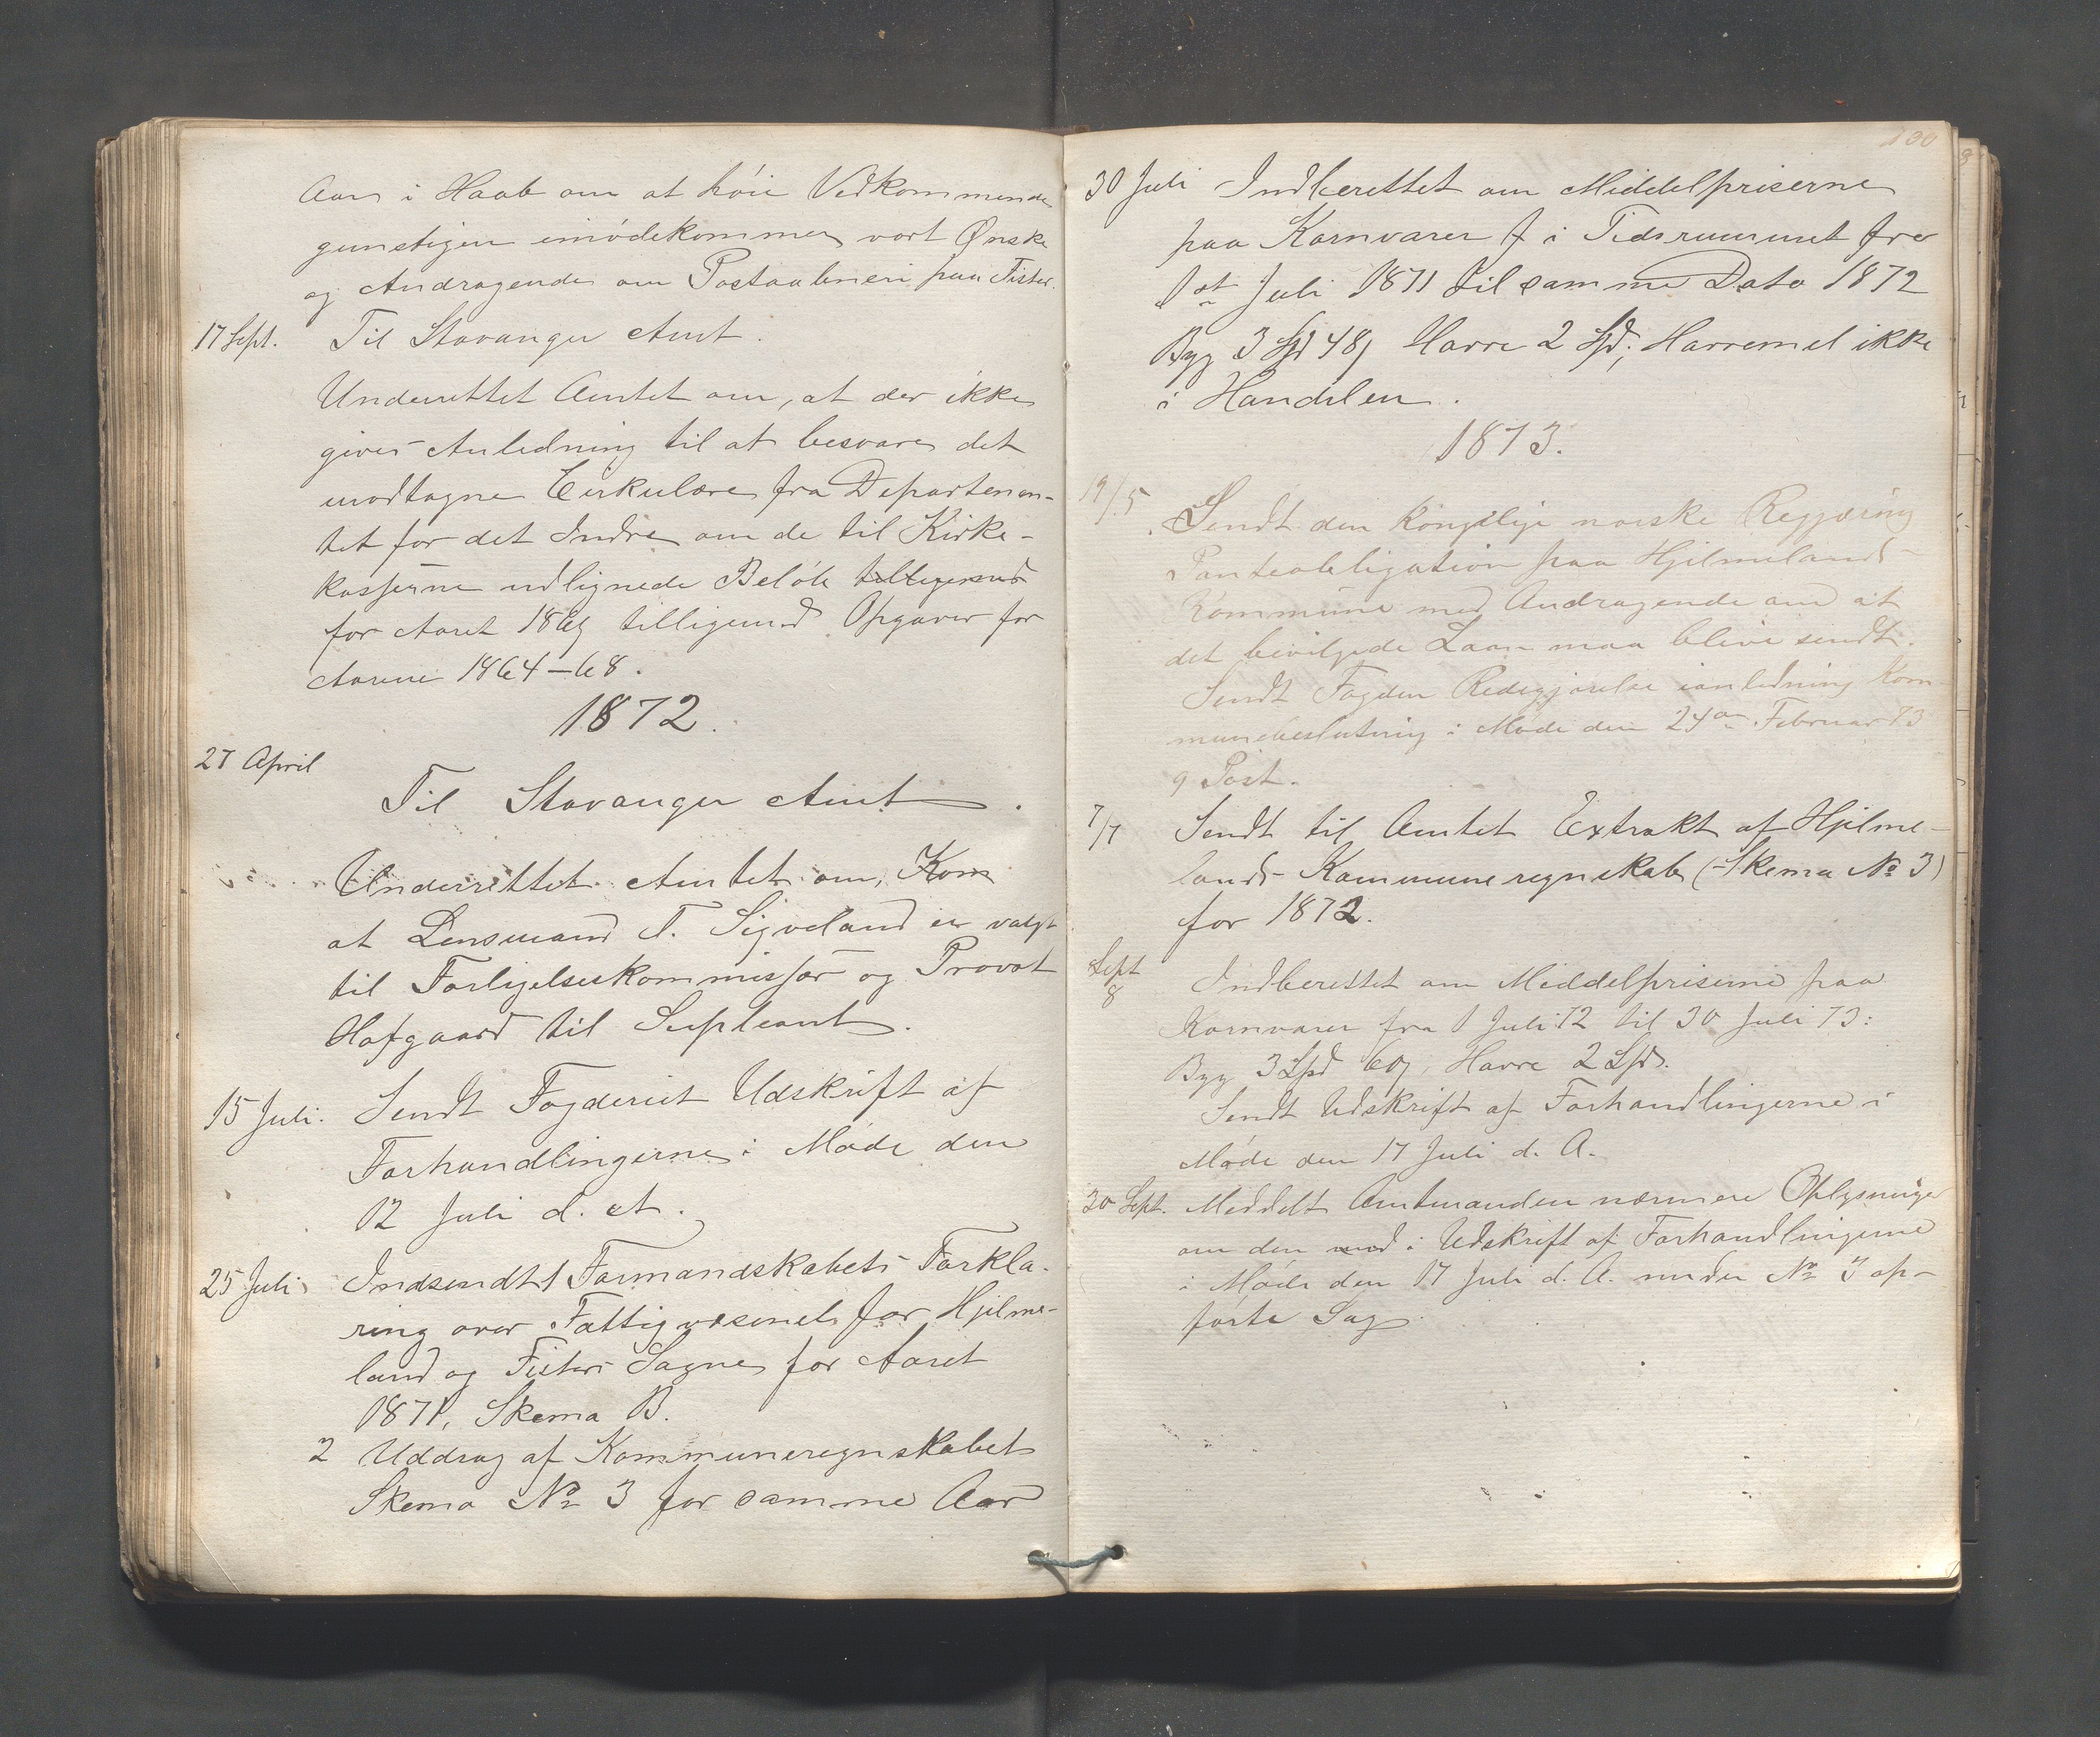 Aar i Haab om at høie Vedkommende
gunstigen imødekommer vort Ønske
og Andragende om Postaabneri paa Fister.
17 Sept. Til Stavanger Amt.
Underrettet Amtet om, at der ikke
gives Anledning til at besvare det
modtagne Cirkulære fra Departemen-
tet for det Indre om de til Kirke-
kasserne udlignede Beløb tilligemed
for Aaret 1869 tilligemed Opgaver for
Aarene 1864-68.
1872.
27 April
Til Stavanger Amt.
Underrettet Amtet om, Kom
at Lensmand T. Sigveland er valgt
til Forligelseskommissær og Provst
Hofgaard til Supleant.
15 Juli. Sendt Fogderiet Udskrift af
Forhandlingerne i Møde den
12 Juli d. A.
25 Juli Indsendt 1 Formandskabets Forkla-
ring over Fattigvæsenet for Hjelme-
land og Fisters Sogne for Aaret
1871, Skema B.
2 Uddrag af Kommuneregnskabet
Skema No 3 for samme Aar
130
30 Juli Indberettet om Middelpriserne
paa Kornvarer f i Tidsrummet fra
1st Juli 1871 til samme Dato 1872
Byg 3 Spd 48, Havre 2 Spd; Havremel ikke
i Handelen.
1873.
19/5 Sendt den kongelige norske Regjering
Panteobligation paa Hjelmelands
Kommune med Andragende om at
det bevilgede Laan maa blive sendt.
Sendt Fogden Redegjørelse ianledning Kom-
munebeslutning i Møde den 24de Februar 73
9 Post.
7/7 Sendt til Amtet Extrakt af Hjelme-
lands Kommuneregnskab (Skema No 3)
for 1872.
Sept
8 Indberettet om Middelpriserne paa
Kornvarer fra 1 Juli 72 til 30 Juli 73:
Byg 3 Spd 60, Havre 2 Spd.
Sendt Udskrift af Forhandlingerne i
Møde den 17 Juli d. A.
30 Sept. Meddelt Amtmanden nærmere Oplysninger
om den med i Udskrift af Forhandlingerne
i Møde den 17 Juli d. A. under No 3 op-
førte Sag.